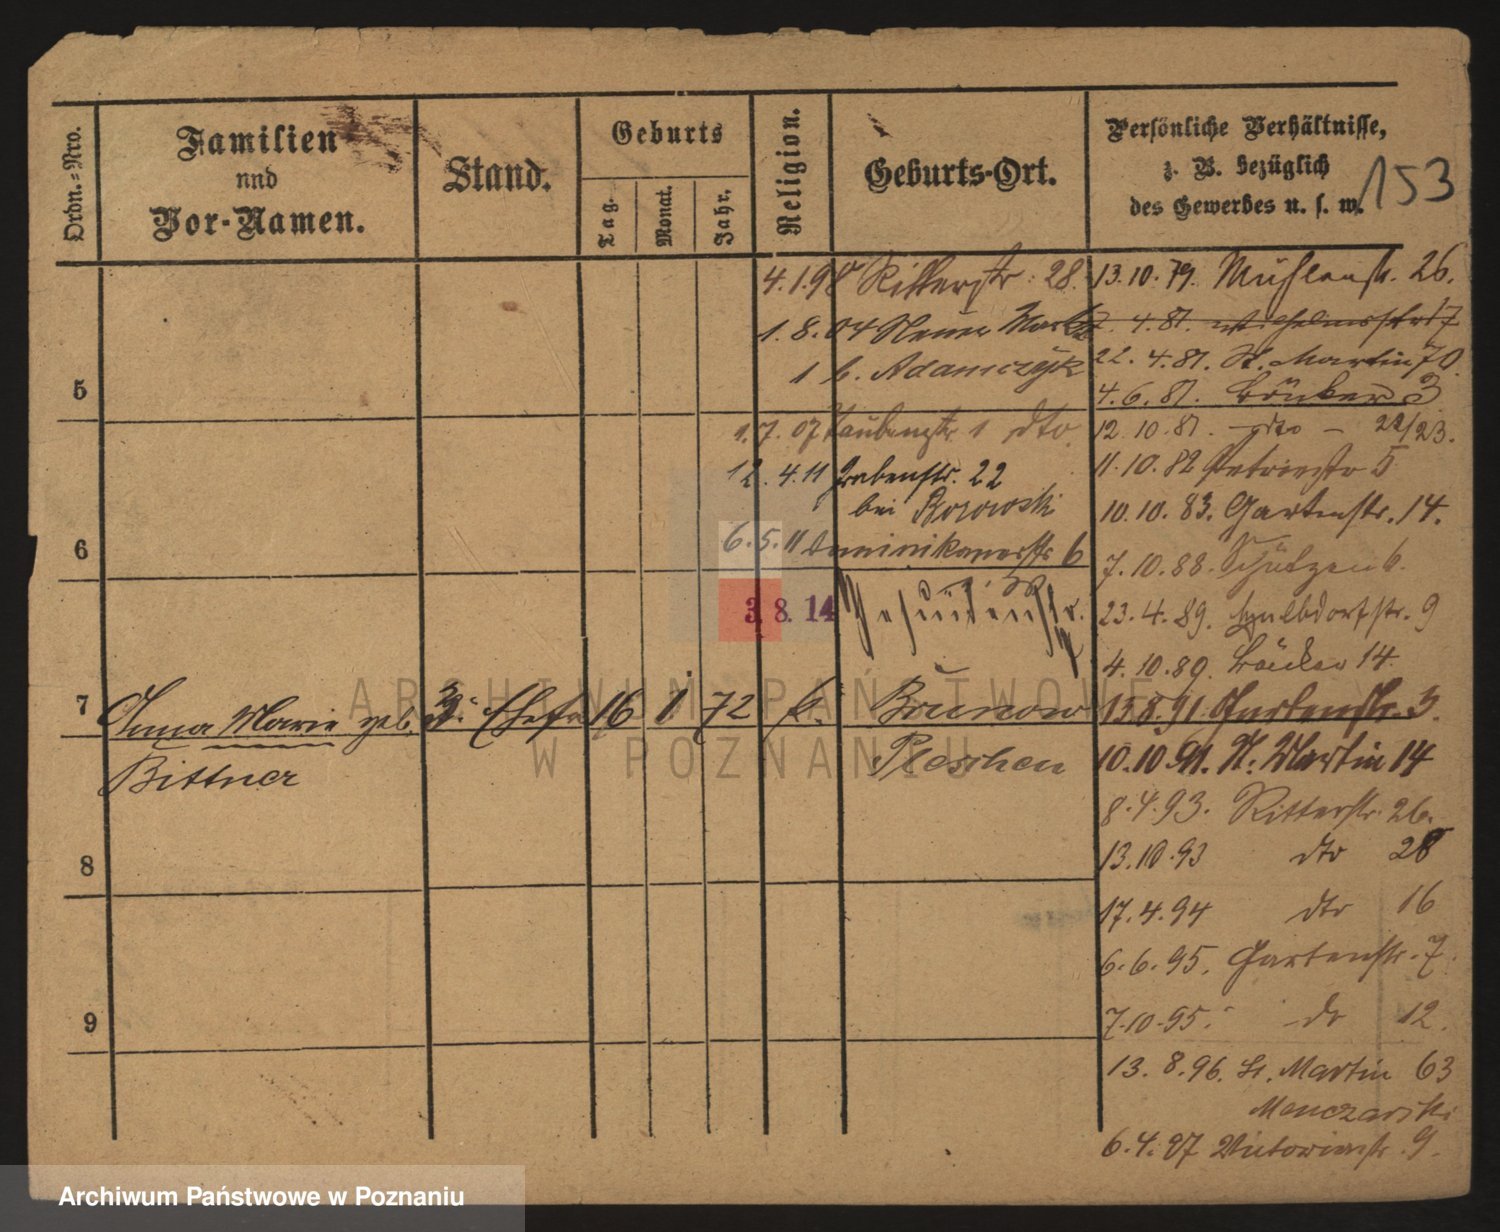 Ordn.-Nro.
Familien
und
Vor-Namen.
Stand.
Geburts
Tag.
Monat.
Jahr.
Religion.
Geburts-Ort.
Persönliche Verhältnisse,
z. B. bezüglich
des Gewerbes u. s. w.
153
4.1.98 Ritterstr. 28.
1.8.04 Neuer Markt
1 b. Adamczyk
1.7.07 Taubenstr 1 dto.
12.4.11 Grabenstr. 22
bei Borowski
6.5.11 Dominikanerstr 6
3.8.14
13.10.79. Mühlenstr. 26.
7.4.81. Wilhelmsstr 17
22.4.81. St. Martin 70.
4.6.81. 3
12.10.81. - dto - 22/23.
11.10.82 Petristr 5
10.10.83. Gartenstr. 14.
7.10.88. Schützen 6.
23.4.89. Halbdorfstr. 9
4.10.89. Bäcker 14.
13.8.91. Gartenstr. 3.
10.10.91. St. Martin 14
8.4.93. Ritterstr. 26.
13.10.93 dto 28
17.4.94 dto 16
6.6.95. Gartenstr. 7.
7.10.95. do 12.
13.8.96. St. Martin 63
6.4.97 Victoriastr. 9.
5
6
7
Anna Marie geb. Ehefr 16 1 72 k. Brunow
Bittner
Pleschen
8
9
ARCHIWUM PAŃSTWOWE
W POZNANIU
Archiwum Państwowe w Poznaniu